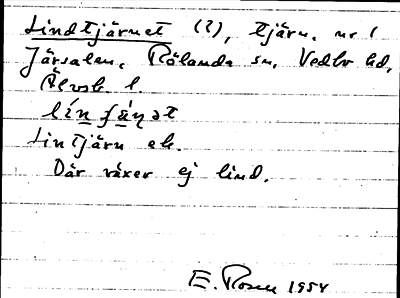 Lindtjärnet (?), tjärn, nr 1
Järsalen, Rölanda sn, Vedbo hd,
Älvsb. l.
Lintjärn ek.
Där växer ej lind.
E. Rosen 1954